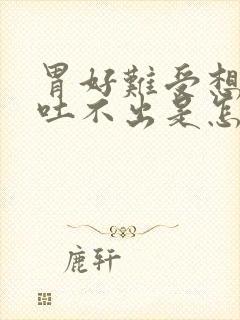 胃好難受想
吐不出是怎
鹿轩